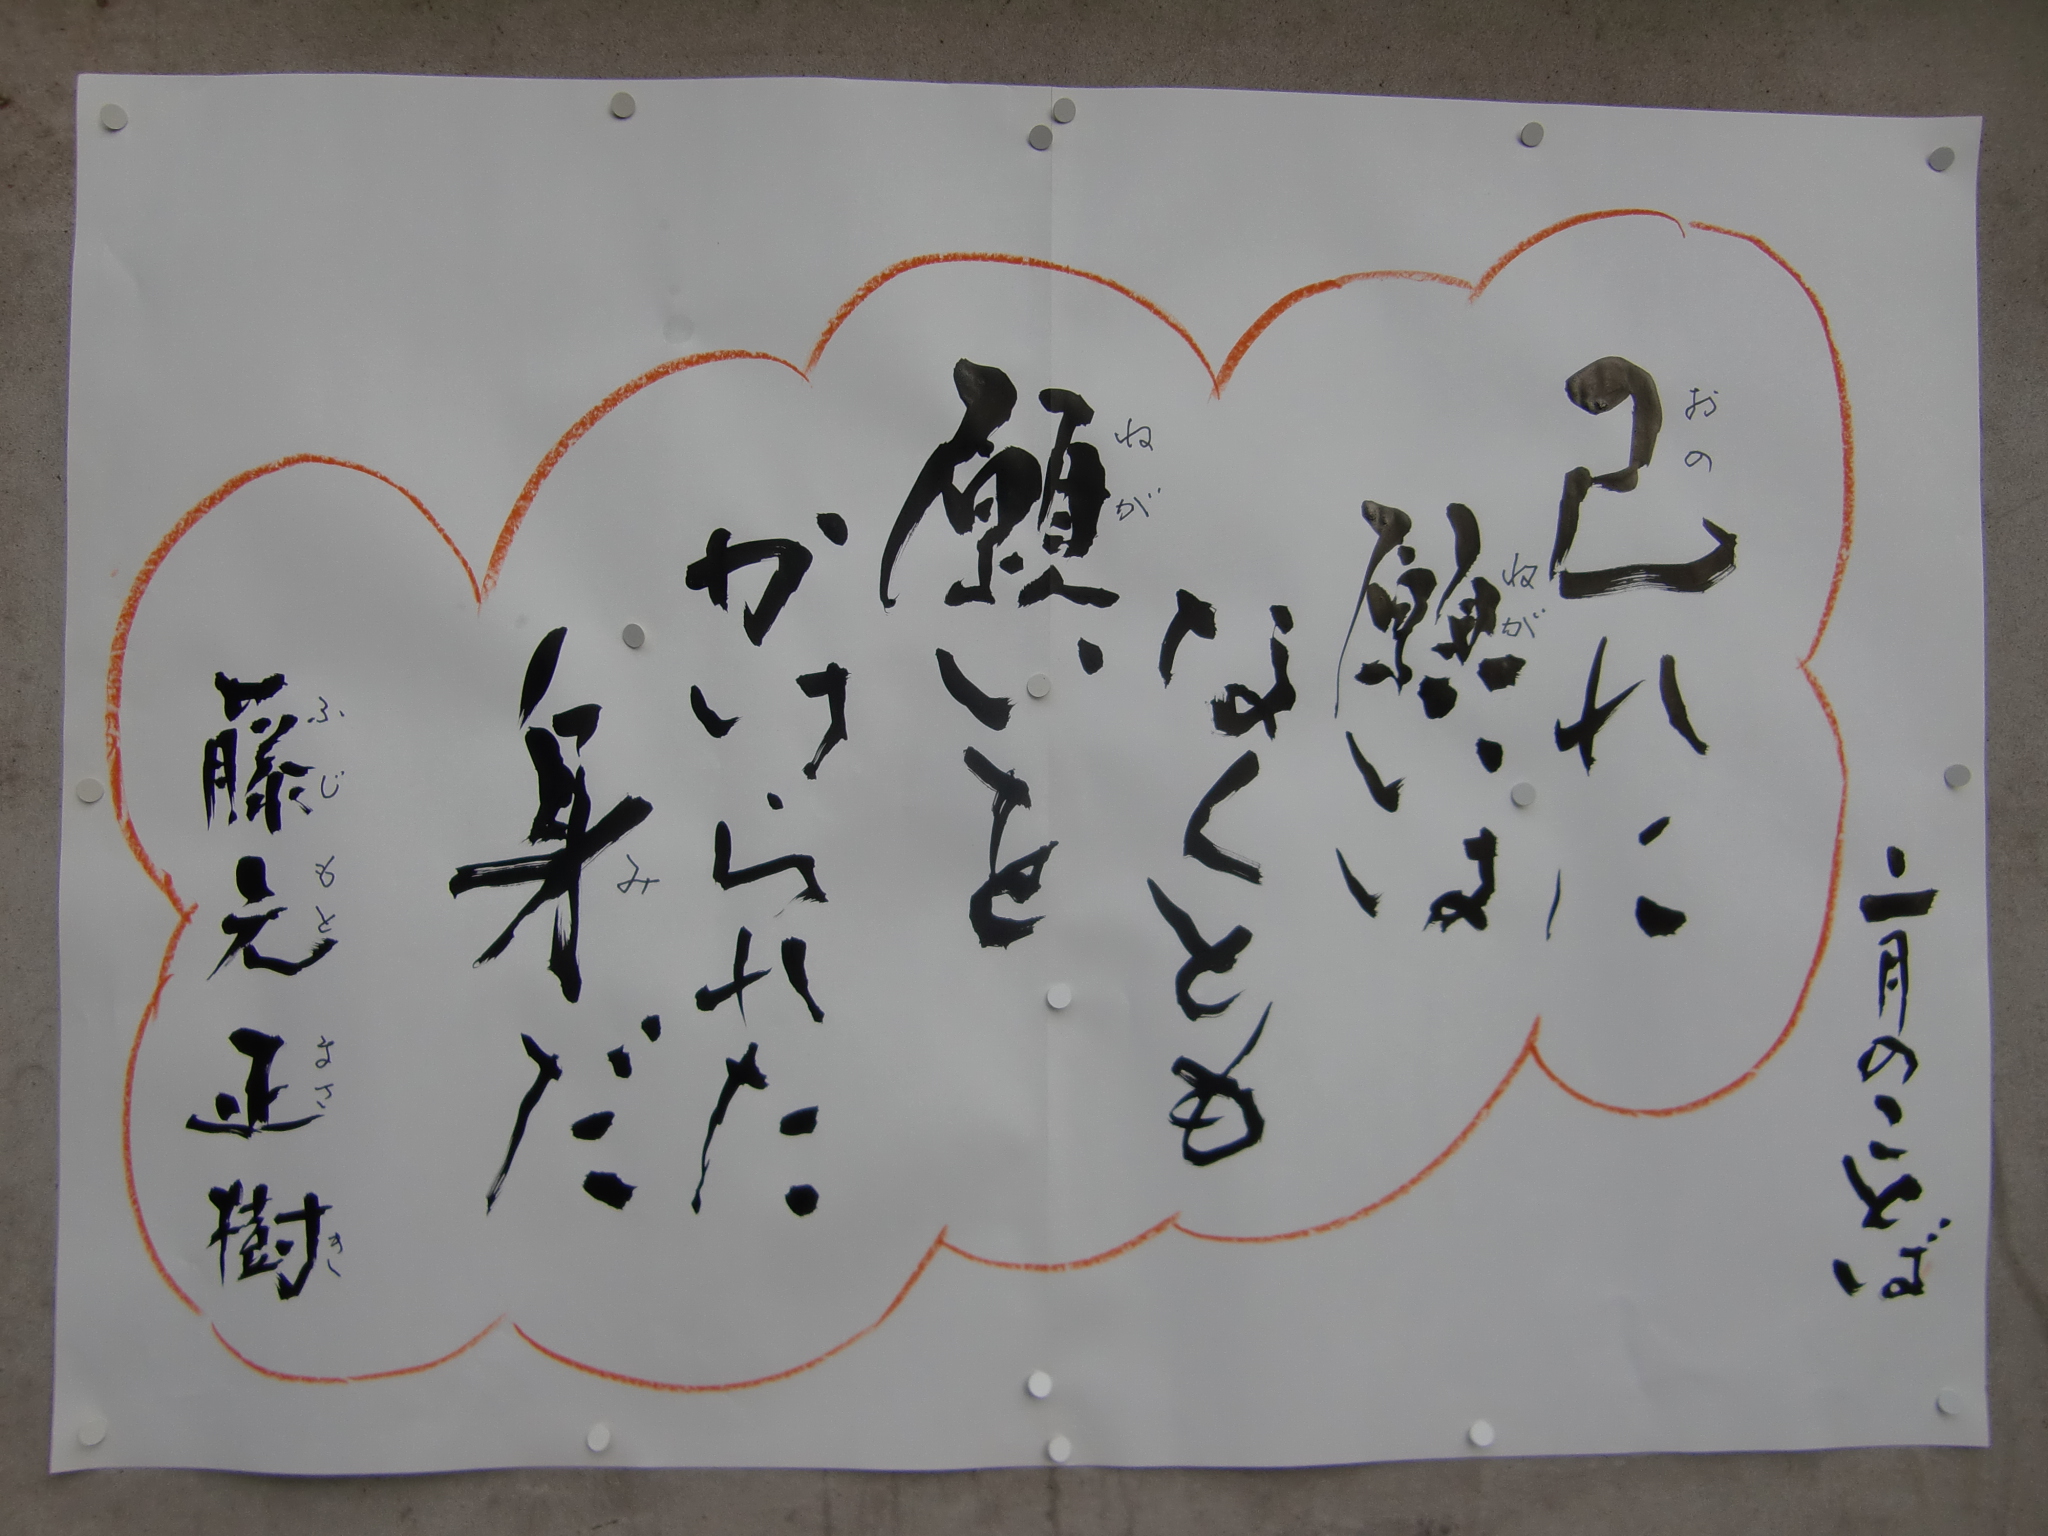 二月のことば
おの
己れに
ねが
願いは
なくとも
ねが
願いを
かけられた
み
身だ
ふじもと まさき
藤元正樹